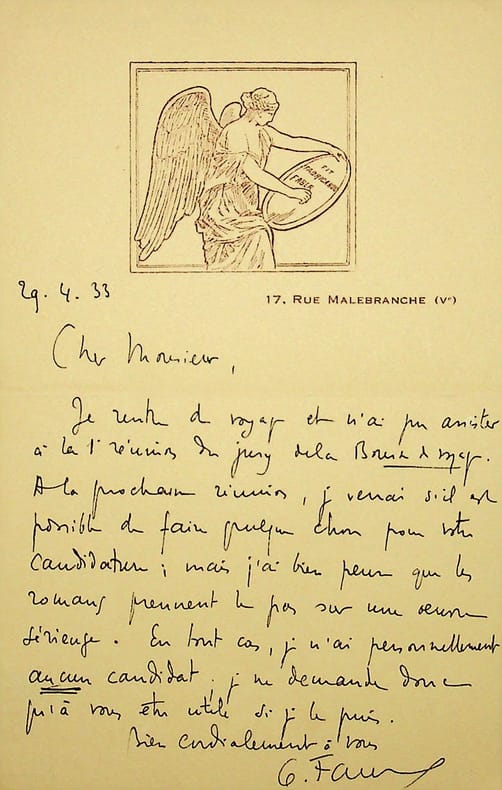 FIT
FABRICANDO
FABER
29. 4. 33
17, RUE MALEBRANCHE (Vᵉ)
Cher Monsieur,
Je rentre de voyage et n'ai pu assister
à la 1ᵉ réunion du jury de la Bourse de voyage.
A la prochaine réunion, je verrai s'il est
possible de faire quelque chose pour votre
candidature ; mais j'ai bien peur que les
romans prennent le pas sur une oeuvre
sérieuse. En tout cas, je n'ai personnellement
aucun candidat ; je ne demande donc
qu'à vous être utile si je le puis.
Bien cordialement à vous